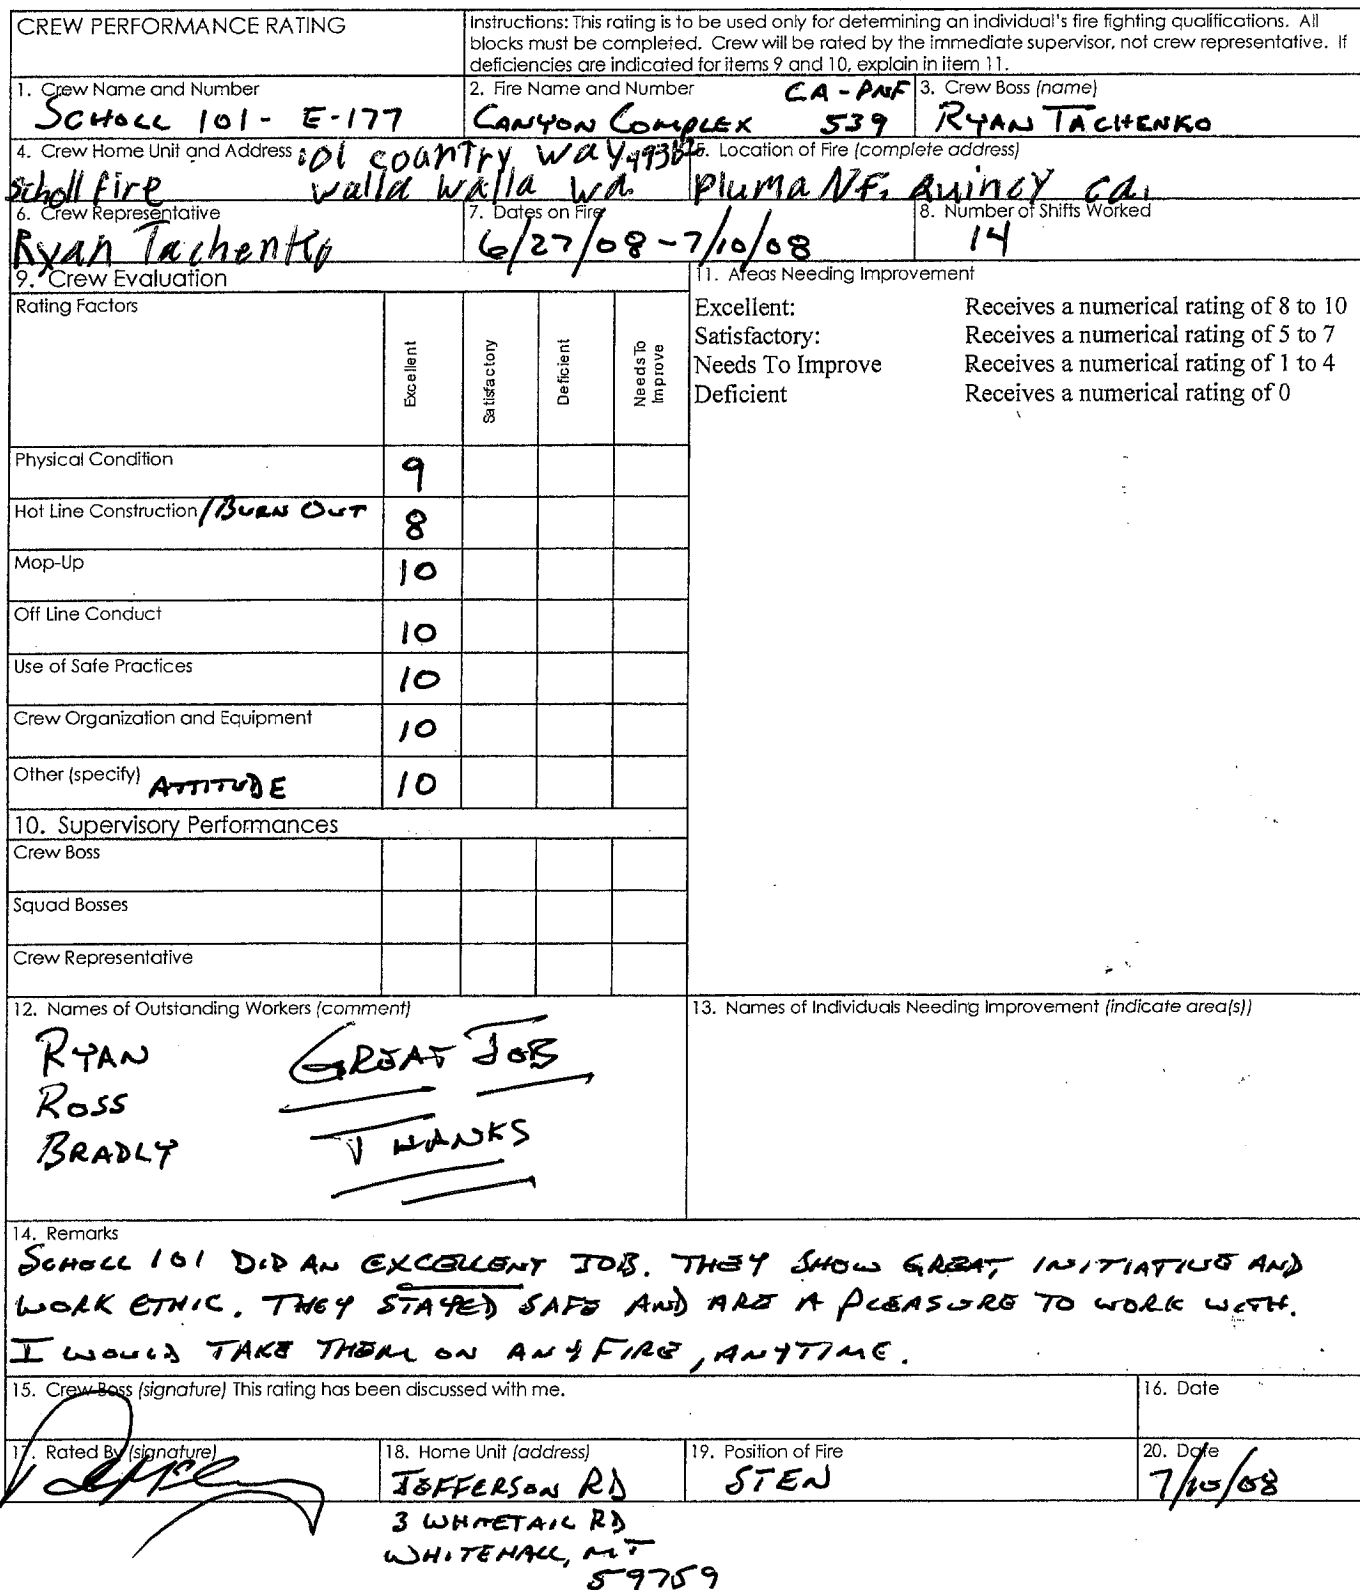 CREW PERFORMANCE RATING
Instructions: This rating is to be used only for determining an individual's fire fighting qualifications. All
blocks must be completed. Crew will be rated by the immediate supervisor, not crew representative. If
deficiencies are indicated for items 9 and 10, explain in item 11.
1. Crew Name and Number
SCHOLL 101- E-177
2. Fire Name and Number CA-PNF
CANYON COMPLEX 539
3. Crew Boss (name)
RYAN TACHENKO
4. Crew Home Unit and Address 101 country way
Scholl fire walla walla wa.
5. Location of Fire (complete address)
Pluma NF. Quincy ca.
6. Crew Representative
Ryan Tachenko
7. Dates on Fire
6/27/08-7/10/08
8. Number of Shifts Worked
14
9. Crew Evaluation
Rating Factors
Excellent
Satisfactory
Deficient
Needs To
Improve
Physical Condition 9
Hot Line Construction /BURN OUT 8
Mop-Up 10
Off Line Conduct 10
Use of Safe Practices 10
Crew Organization and Equipment 10
Other (specify) ATTITUDE 10
10. Supervisory Performances
Crew Boss
Squad Bosses
Crew Representative
11. Areas Needing Improvement
Excellent: Receives a numerical rating of 8 to 10
Satisfactory: Receives a numerical rating of 5 to 7
Needs To Improve Receives a numerical rating of 1 to 4
Deficient Receives a numerical rating of 0
12. Names of Outstanding Workers (comment)
RYAN GREAT JOB
ROSS
BRADLY THANKS
13. Names of Individuals Needing Improvement (indicate area(s))
14. Remarks
SCHOLL 101 DID AN EXCELLENT JOB. THEY SHOW GREAT INITIATIVE AND
WORK ETHIC. THEY STAYED SAFE AND ARE A PLEASURE TO WORK WITH.
I WOULD TAKE THEM ON ANY FIRE, ANYTIME.
15. Crew Boss (signature) This rating has been discussed with me.
16. Date
17. Rated By (signature)
18. Home Unit (address)
JEFFERSON RD
3 WHITETAIL RD
WHITEHALL, MT
59759
19. Position of Fire
STEN
20. Date
7/10/08